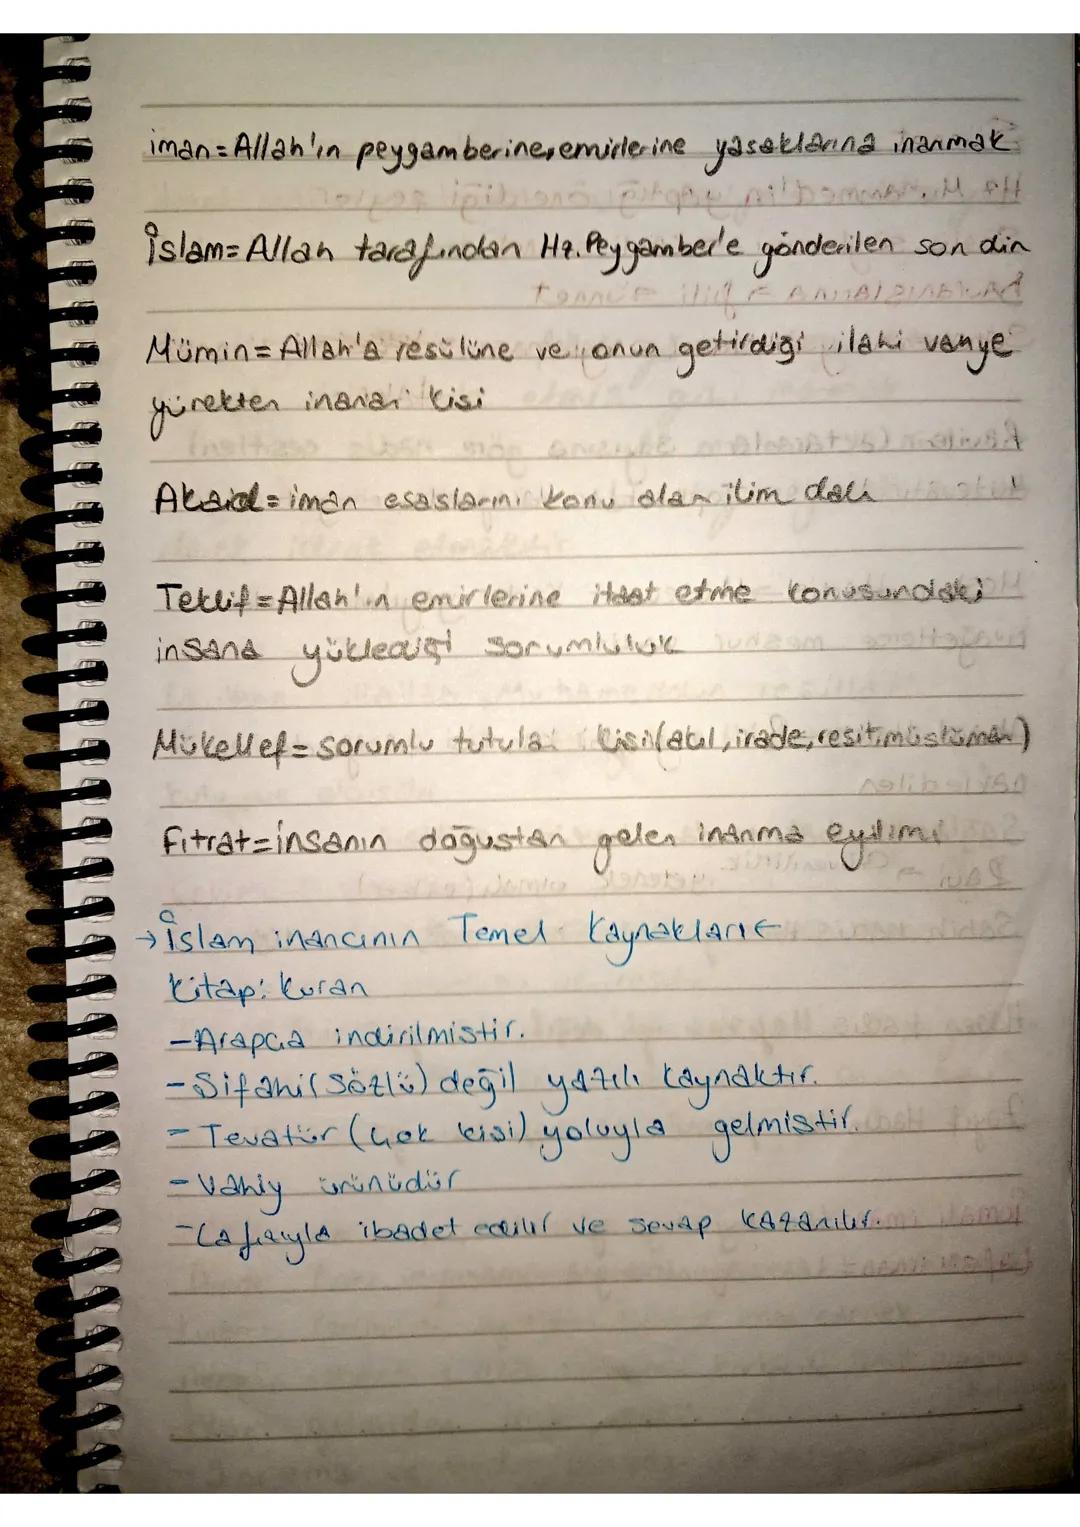 iman=Allah'ın peygamberine,emirlerine yasaklarına inanmak
İslam=Allah tarafından Hz.Peygamber'e gönderilen son din
Mümin=Allah'a resülüne ve onun getirdiği ilahi vahye
yürekten inanan kisi
Akaid=iman esaslarını konu alan ilim dalı
Teklif=Allah'ın emirlerine itaat etme konusundaki
insana yüklediği sorumluluk
Mükellef=sorumlu tutulan kisi(akıl,irade,resit,müslüman)
Fıtrat=insanın doğustan gelen inanma eyilimi
→İslam inancının Temel Kaynakları←
Kitap: Kuran
-Arapca indirilmistir.
-Sifahi(sözlü) değil yazılı kaynaktır.
-Tevatür (çok kisi) yoluyla gelmistir.
-Vahiy ürünüdür
-Lafzıyla ibadet edilir ve sevap kazanılır.